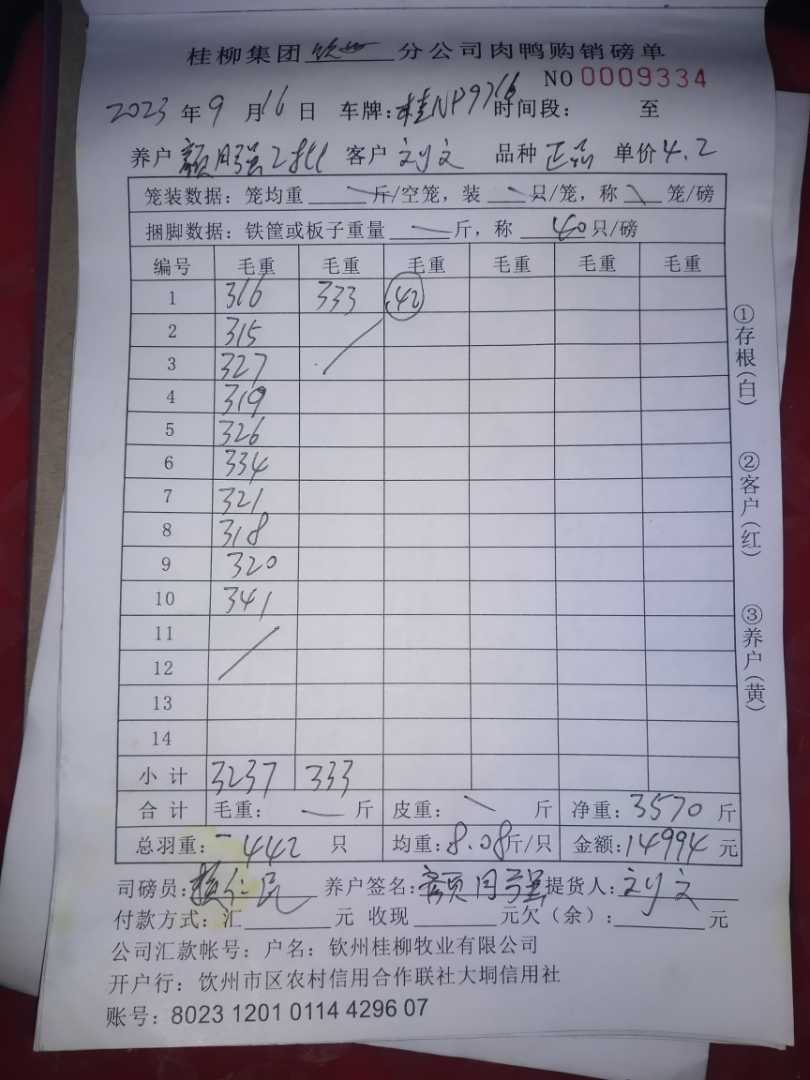 桂柳集团 钦州 分公司肉鸭购销磅单
NO 0009334
2023 年 9 月 16 日 车牌: 桂NP9716 时间段: 至
养户 颜月强2批 客户 刘文 品种 正品 单价 4.2
笼装数据: 笼均重 斤/空笼, 装 只/笼, 称 笼/磅
捆脚数据: 铁筐或板子重量 斤, 称 40 只/磅
编号 毛重 毛重 毛重 毛重 毛重 毛重
1 316 333 42
2 315
3 327
4 319
5 326
6 334
7 321
8 318
9 320
10 341
11
12
13
14
小计 3237 333
合计 毛重: 斤 皮重: 斤 净重: 3570 斤
总羽重: 442 只 均重: 8.08 斤/只 金额: 14994 元
司磅员: 仁民 养户签名: 颜月强 提货人: 刘文
付款方式: 汇 元 收现 元欠(余): 元
公司汇款帐号: 户名: 钦州桂柳牧业有限公司
开户行: 钦州市区农村信用合作联社大垌信用社
账号: 8023 1201 0114 4296 07
①存根(白)
②客户(红)
③养户(黄)